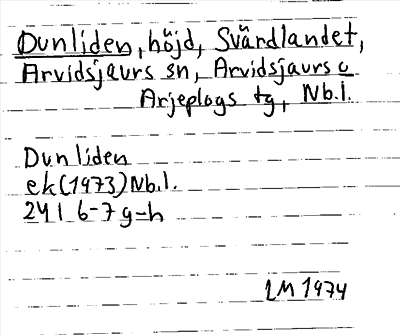 Dunliden, höjd, Svärdlandet,
Arvidsjaurs sn, Arvidsjaurs o
Arjeplogs tg, Nb.l.
Dunliden
ek(1973)Nb.l.
24I 6-7g-h
LM 1974